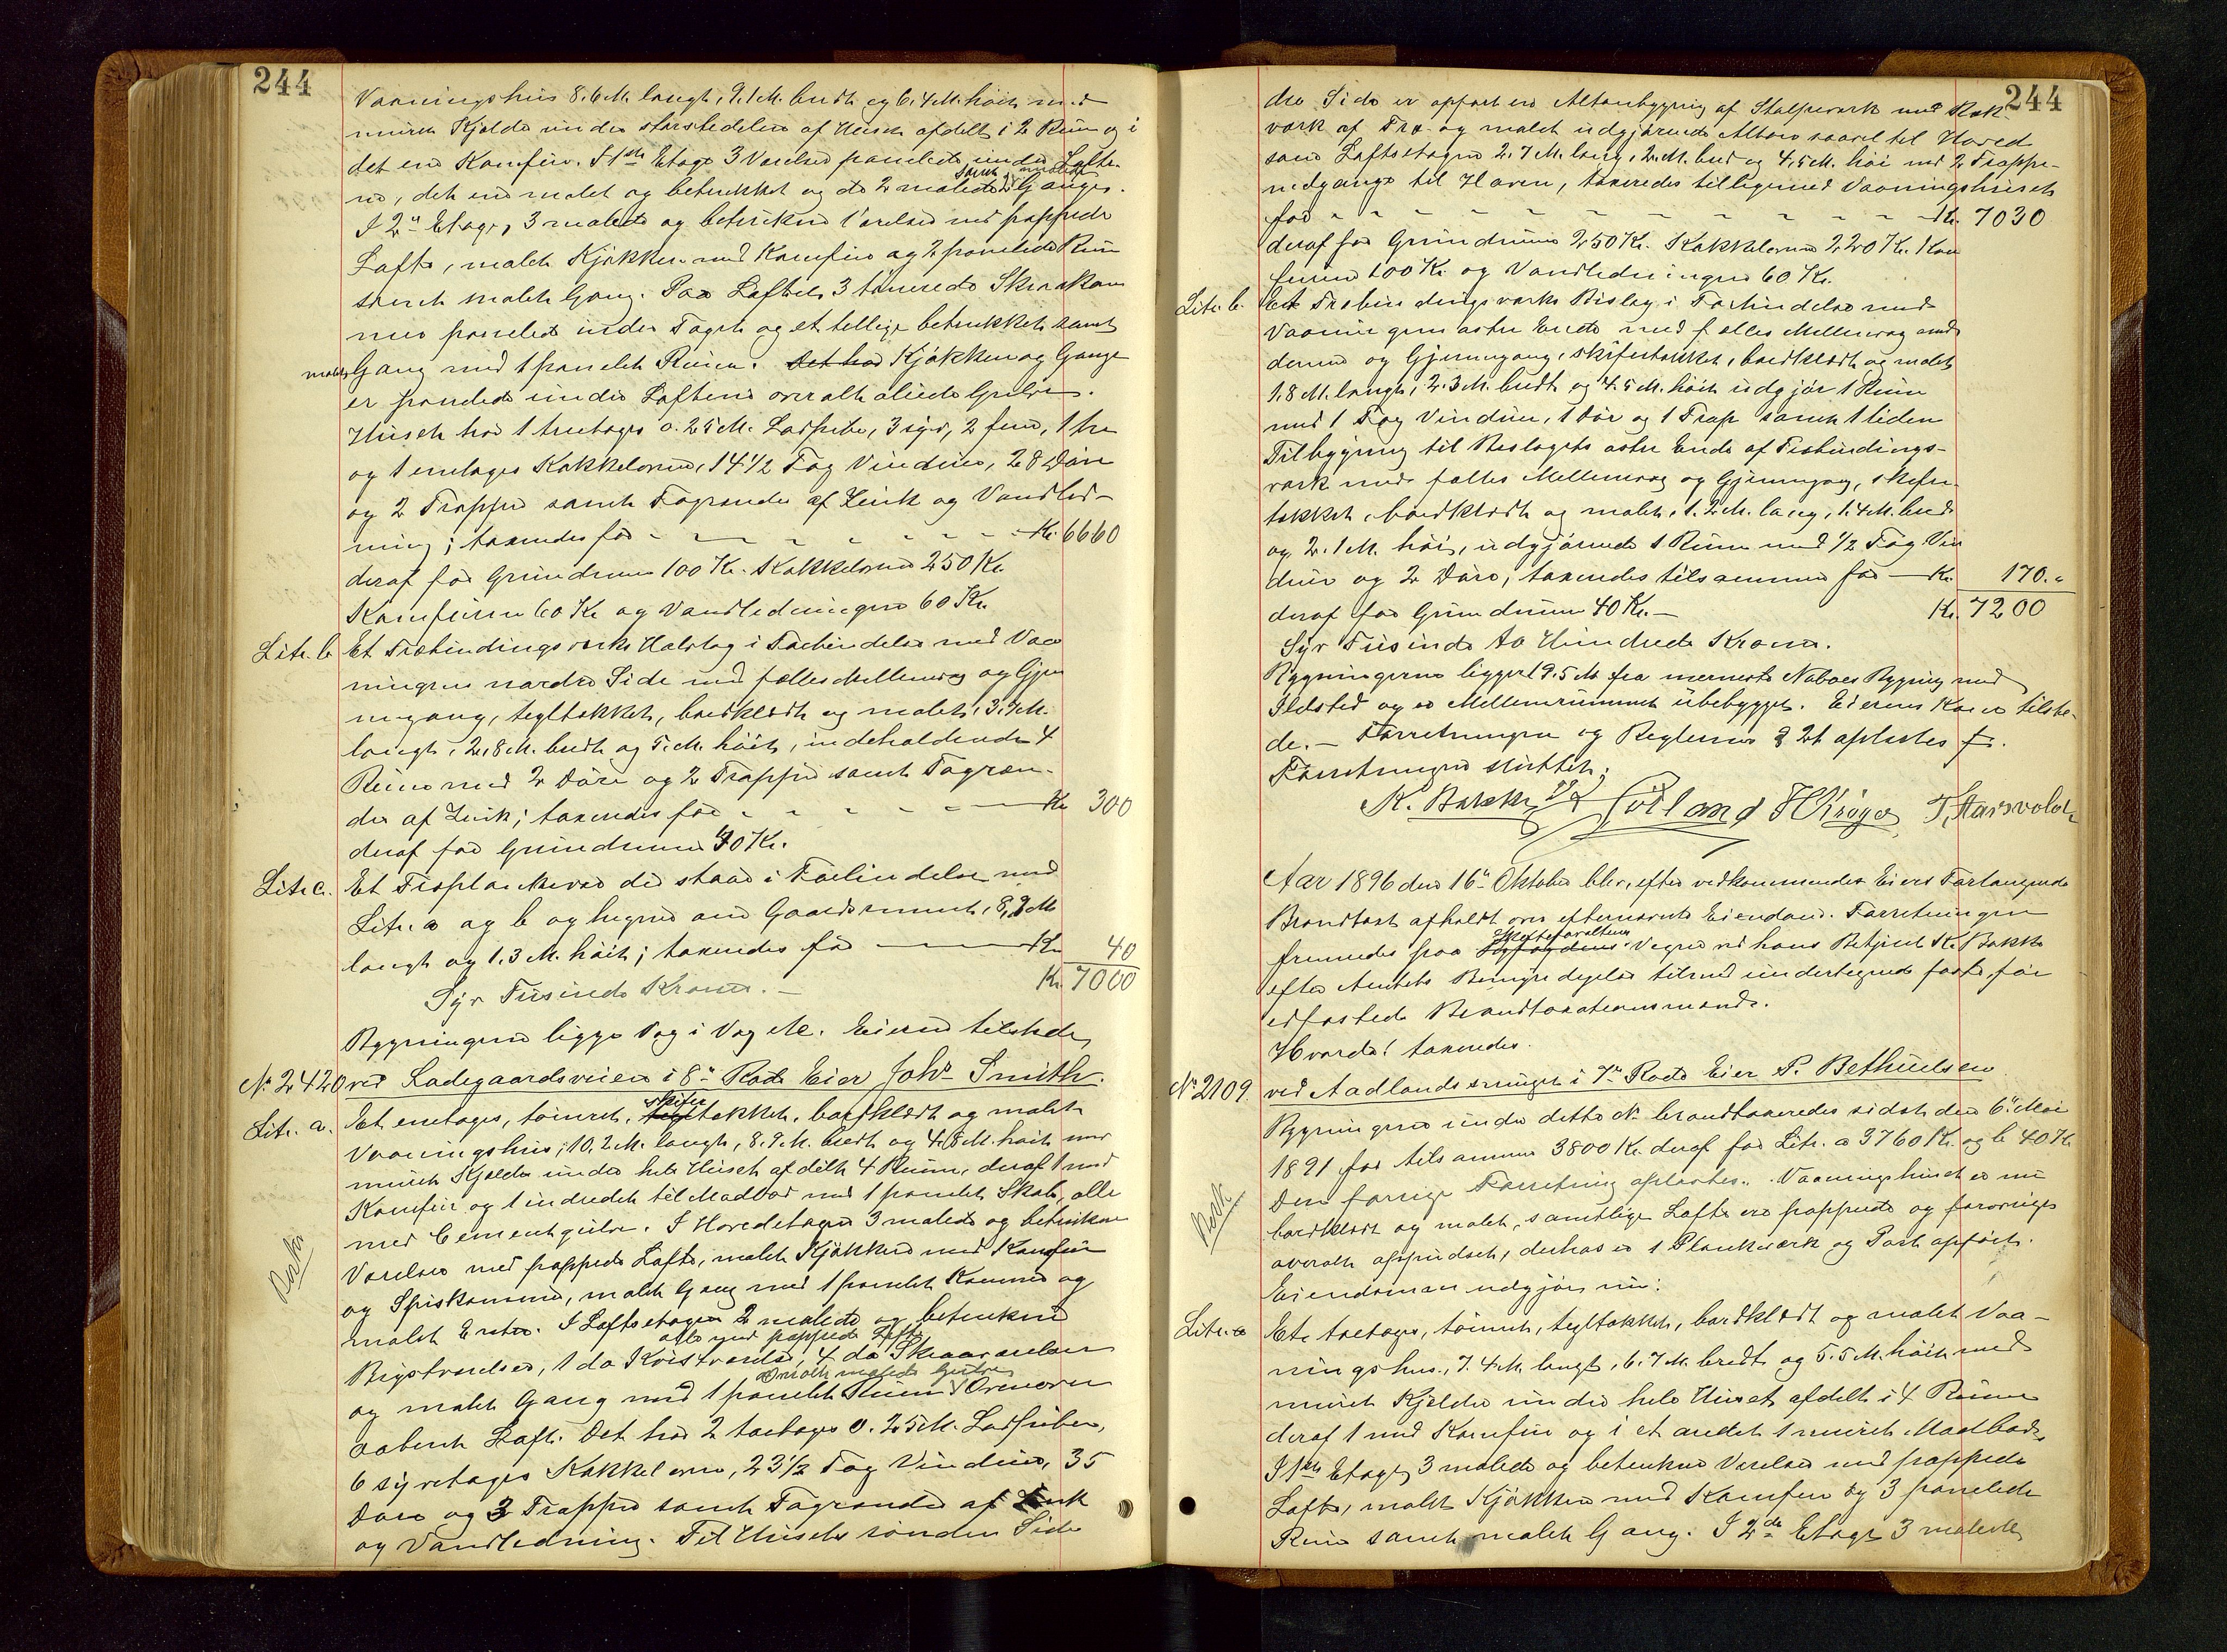 244
Vaaningshus 8.6 M. langt, 9.1 M. bredt og 6.4 M. höit med
muret Kjelder under störstedelen af Huset afdelt i 2 Rum og i
det ene Komfur. I 1ste Etage 3 Værelser panelede under Lofte-
ne, det ene malet og betrukket og de 2 malede samt 2 malede Gange.
I 2n Etage, 3 malede og betrukne Værelser med pappede
Lofte, malet Kjökken med Komfur og 2 panelede Rum
samt malet Gang. Paa Loftet 3 tömrede Skraakam
mer panelede under Taget og et tillige betrukket samt
malet Gang med 1 panelet Rum. Det har Kjökken og Gange
er panelede under Loftene overalt oliede Gulve.
Huset har 1 treetages o. 25 M. Ladpibe, 3 sejs, 2 fem, 1 tre
og 1 enetages Kakkelovne, 14 1/2 Fag Vinduer, 28 Döre
og 2 Trapper samt Tagrender af Zink og Vandled-
ning; taxeredes for - - - - - - - Kr. 6660
deraf for Grundmuren 100 Kr. Kakkelovne 250 Kr
Komfuren 60 Kr og Vandledningen 60 Kr.
Litr. b Et Træbindingsværks Halvtag i Forbindelse med Vaa
ningens nordre Side med fælles Mellemvæg og Gjen
nemgang, tegltækket, bordklædt og malet, 3.7 M.
langt, 2.8 M. bredt og 5. M. höit, indeholdende 4
Rum med 2 Döre og 2 Trapper samt Tagren-
der af Zink; taxeredes for - - - - - Kr 300
deraf for Grundmuren 40 Kr.
Litr c. Et Træplankeværk der staar i Forbindelse med
Litr. a og b og hegner om Gaardsrummet, 8,9 M
langt og 1.3 M. höit; taxeredes for — Kr 40
Syv Tusinde Kroner. — Kr. 7000
Bygningerne ligge Vag i Vag etc. Eieren tilstede
No 2420 ved Ladegaardsveien i 8n Rode Eier Johs Smith.
Litr. a. Et enetages, tömret, skifer tegltækket, bordklædt og malet
Vaaningshus; 10.2 M. langt, 8.9 M. bredt og 4.8 M. höit med
muret Kjelder under hele Huset afdelt 4 Rum, deraf 1 med
Komfur og 1 indredet til Madbod med 1 panelet Skab, alle
med Cementgulve. I Hovedetagen 3 malede og betrukne
Værelser med pappede Lofte, malet Kjökken med Komfur
og Spiskammer, malet Gang med 1 panelet Kammer og
malet Entre. I Loftsetagen 2 malede og betrukne
Bryst
alle med pappede Lofte
Kvistværelse, 4 do Skraaværelser
overalt malede Gulve
og malet Gang med 1 panelet Rum Ovenover
aabent Loft. Det har 2 toetages o. 25 M. Ladpiber,
6 syvetages Kakkelovne, 23 1/2 Fag Vinduer, 35
Döre og 3 Trapper samt Tagrender af Zink
og Vandledning. Til Husets söndre Side
244
dre Side er opfört en Altanbygning af Stolpeværk med Ræk-
værk af Træ og malet udgjörende Altan saavel til Hoved
som Loftsetagen 2.7 M. lang, 2. M. bred og 4,5 M. höi med 2 Trappe-
nedgange til Haven, taxeredes tilligemed Vaaningshuset
for - - - - - - - - - - - - Kr. 7030
deraf for Grundmuren 250 Kr. Kakkelovne 220 Kr. Kom
furene 100 Kr. og Vandledningen 60 Kr.
Litr. b Et Træbindingsværks Bislag i Forbindelse med
Vaaningens östre Ende med fælles Mellemvæg med
denne og Gjennemgang, skifertækket, bordklædt og malet
1.8 M. langt, 2.3 M. bredt og 4.5 M. höit udgjör 1 Rum
med 1 Fag Vindue, 1 Dör og 1 Trap samt 1 liden
Tilbygning til Bislagets östre Ende af Træbindings-
værk med fælles Mellemvæg og Gjennemgang, skifer
tækket, bordklædt og malet, 1.2 M. lang, 1.4 M. bred
og 2.1 M. höi, udgjörende 1 Rum med 1/2 Fag Vin
due og 2 Döre; taxeredes tilsammen for — Kr. 170.-
deraf for Grundmuren 40 Kr. — Kr. 7200
Syv Tusinde to Hundrede Kroner.
Bygningerne ligger 19.5 M fra nærmeste Naboes Bygning med
Ildsted og er Mellemrummet ubebygget. Eierens Kone tilste-
de. — Forretningen og Reglernes § 21 oplæstes
Forretningen sluttet.
K. Bakke HKröger T. Stansvoldt
Aar 1896 den 16n Oktober blev, efter vedkommende Eiers Forlangende
Brandtaxt afholdt over efternævnte Eiendom. Forretningen
fremmedes paa Byfogdens Vegne ved hans Betjent K. Bakke
efter Amtets Bemyndigelse tilmed undertegnede faste, för
edfæstede Brandtaxationsmænd.
Hvorda! taxeredes.
No 2109. ved Aadlandssvinget i 7n Rode Eier P. Bethuelsen
Bygningerne under dette No brandtaxeredes sidst den 6n Mai
1891 for tilsammen 3800 Kr. deraf for Litr. a 3760 Kr. og b 40 Kr
Den forrige Forretning oplæstes. Vaaningshuset er nu
bordklædt og malet, samtlige Lofte ere pappede og forövriges
overalt oppudset, derhos er 1 Plankeværk og Port opfört.
Eiendommen udgjör nu:
Litr. a Et toetages, tömret, tegltækket, bordklædt og malet Vaa-
ningshus, 7.4 M. langt, 6.7 M. bredt og 5.5 M. höit med
muret Kjelder under hele Huset afdelt i 4 Rum
deraf 1 med Komfur og i et andet 1 muret Madbod.
I 1ste Etage 3 malede og betrukne Værelser med pappede
Lofte, malet Kjökken med Komfur og 3 panelede
Rum samt malet Gang. I 2de Etage 3 malede